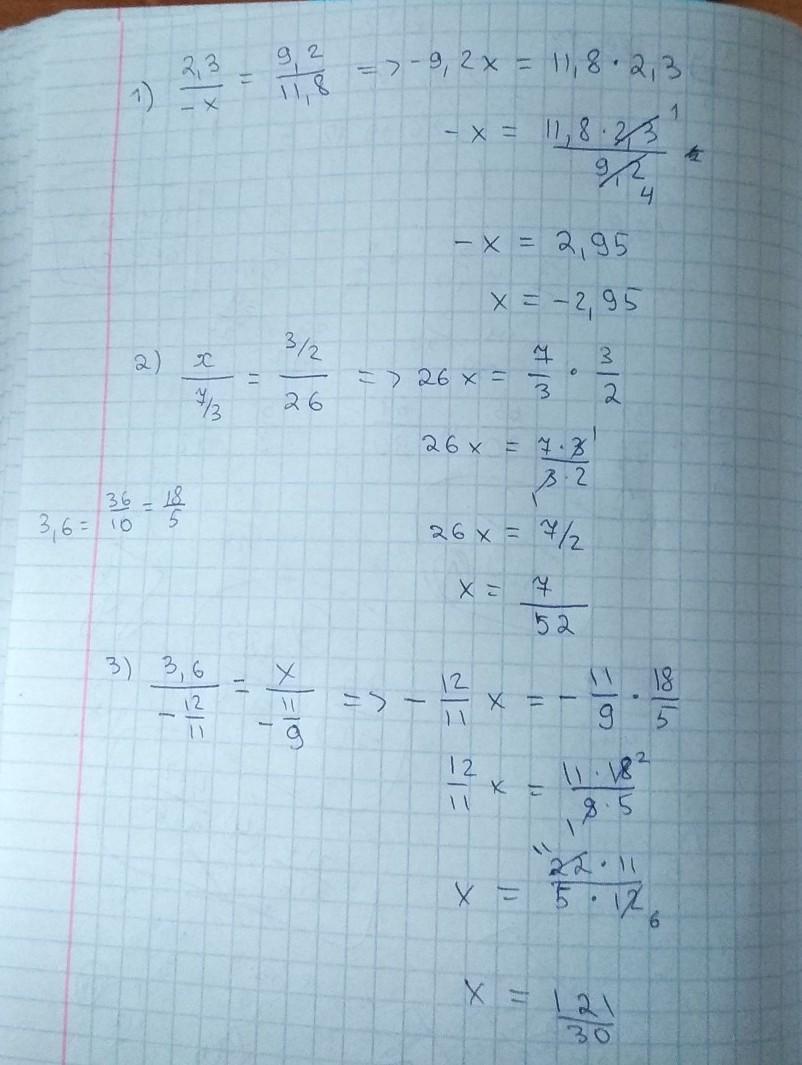 1) 2,3/-x = 9,2/11,8 => -9,2x = 11,8 · 2,3
-x = 11,8 · 2,3 1 / 9,2 4
-x = 2,95
x = -2,95
2) x/7/3 = 3/2/26 => 26x = 7/3 · 3/2
26x = 7·3 1 / 3·2 1
3,6 = 36/10 = 18/5
26x = 7/2
x = 7/52
3) 3,6/-12/11 = x/-11/9 => -12/11 x = -11/9 · 18/5
12/11 x = 11·18 2 / 1 9·5
x = 11 22·11 / 5·12 6
x = 121/30